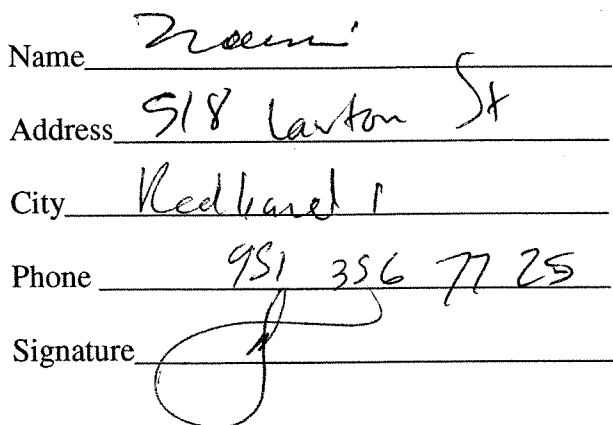 Name Naemi
Address 518 Lawton St
City Redland
Phone 951 356 77 25
Signature